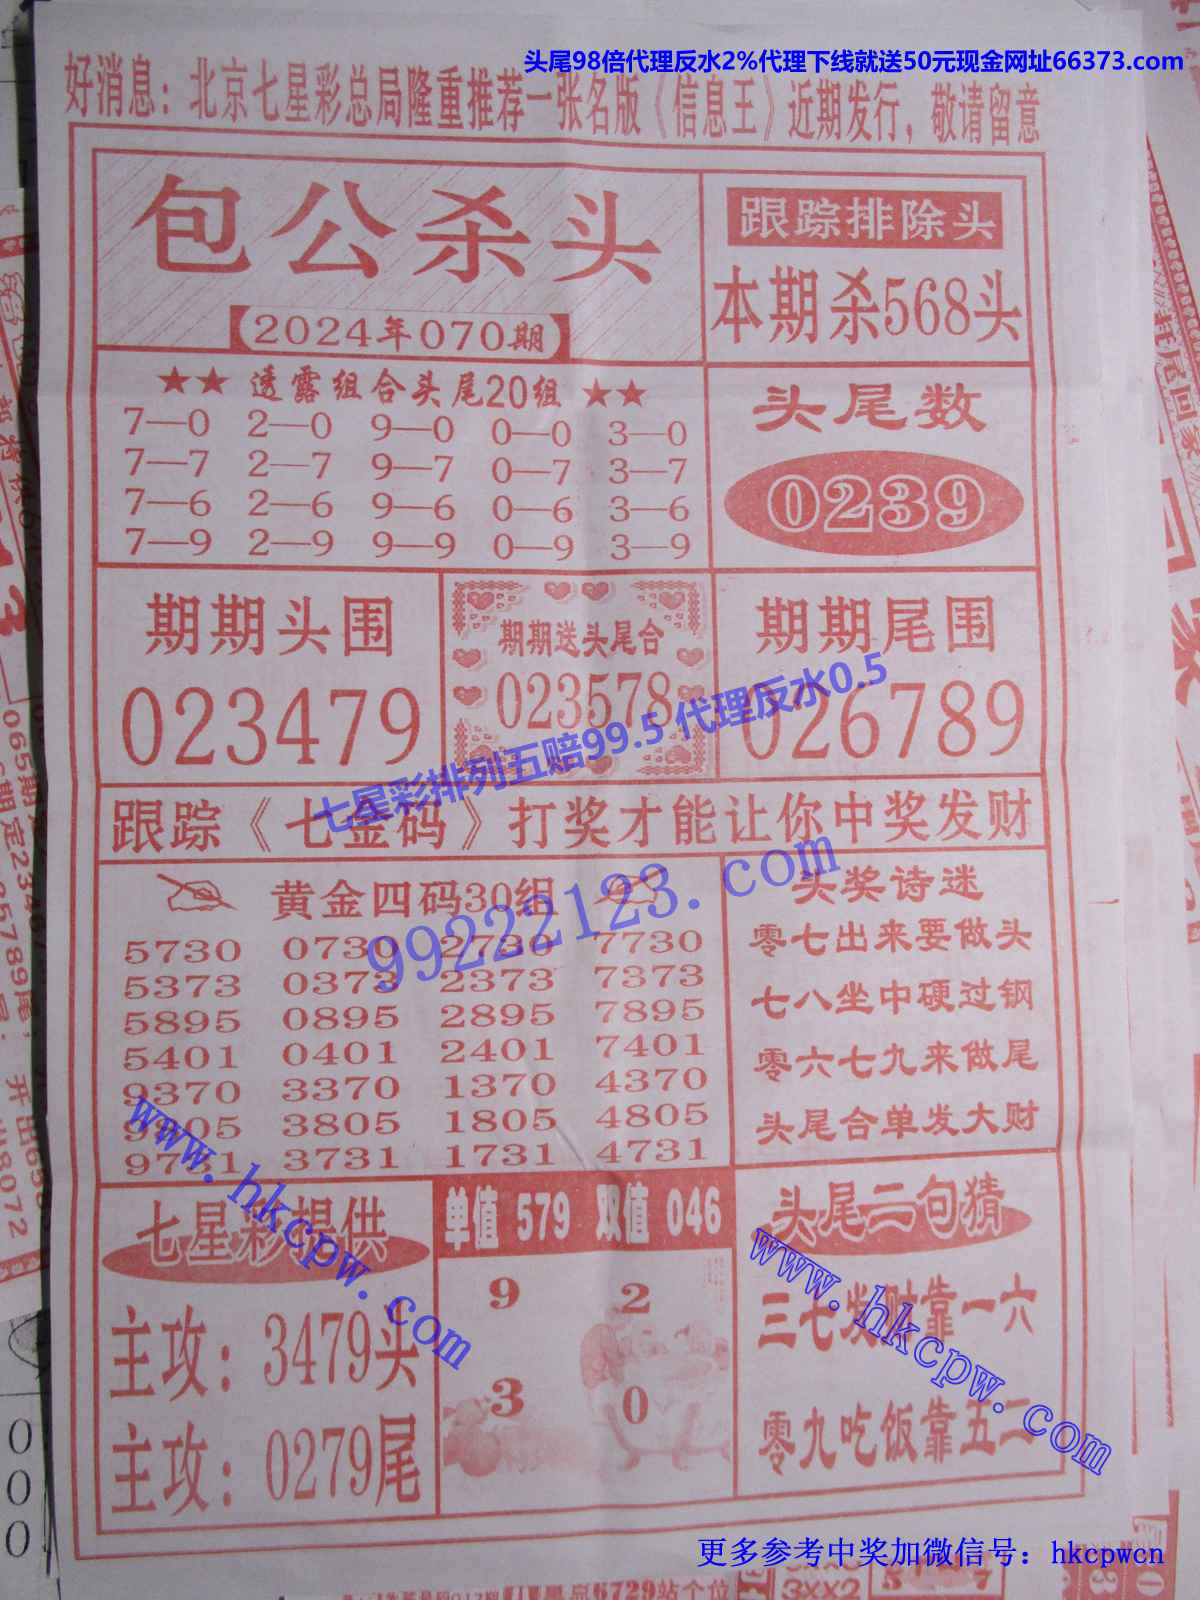 头尾98倍代理反水2%代理下线就送50元现金网址66373.com
好消息：北京七星彩总局隆重推荐一张名版《信息王》近期发行，敬请留意
包公杀头
【2024年070期】
跟踪排除头
本期杀568头
★★ 透露组合头尾20组 ★★
7—0 2—0 9—0 0—0 3—0
7—7 2—7 9—7 0—7 3—7
7—6 2—6 9—6 0—6 3—6
7—9 2—9 9—9 0—9 3—9
头尾数
0239
期期头围
023479
期期送头尾合
023578
期期尾围
026789
七星彩排列五赔99.5 代理反水0.5
跟踪《七金码》打奖才能让你中奖发财
99222123.com
黄金四码30组
5730 0730 2730 7730
5373 0373 2373 7373
5895 0895 2895 7895
5401 0401 2401 7401
9370 3370 1370 4370
9805 3805 1805 4805
9731 3731 1731 4731
头奖诗迷
零七出来要做头
七八坐中硬过钢
零六七九来做尾
头尾合单发大财
www.hkcpw.com
七星彩提供
主攻：3479头
主攻：0279尾
单值 579 双值 046
9 2
3 0
头尾二句猜
三七发财靠一六
零九吃饭靠五二
www.hkcpw.com
更多参考中奖加微信号：hkcpwcn
000
3XX2